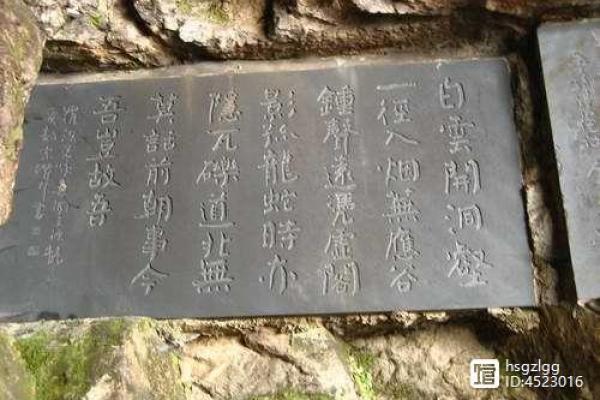 白雲開洞壑
一徑入烟蕪應谷
鍾聲遠凭虛閣
影孤龍蛇時亦
隱瓦礫道非無
莫話前朝事今
吾豈故吾
hsgzlgg
ID:4523016